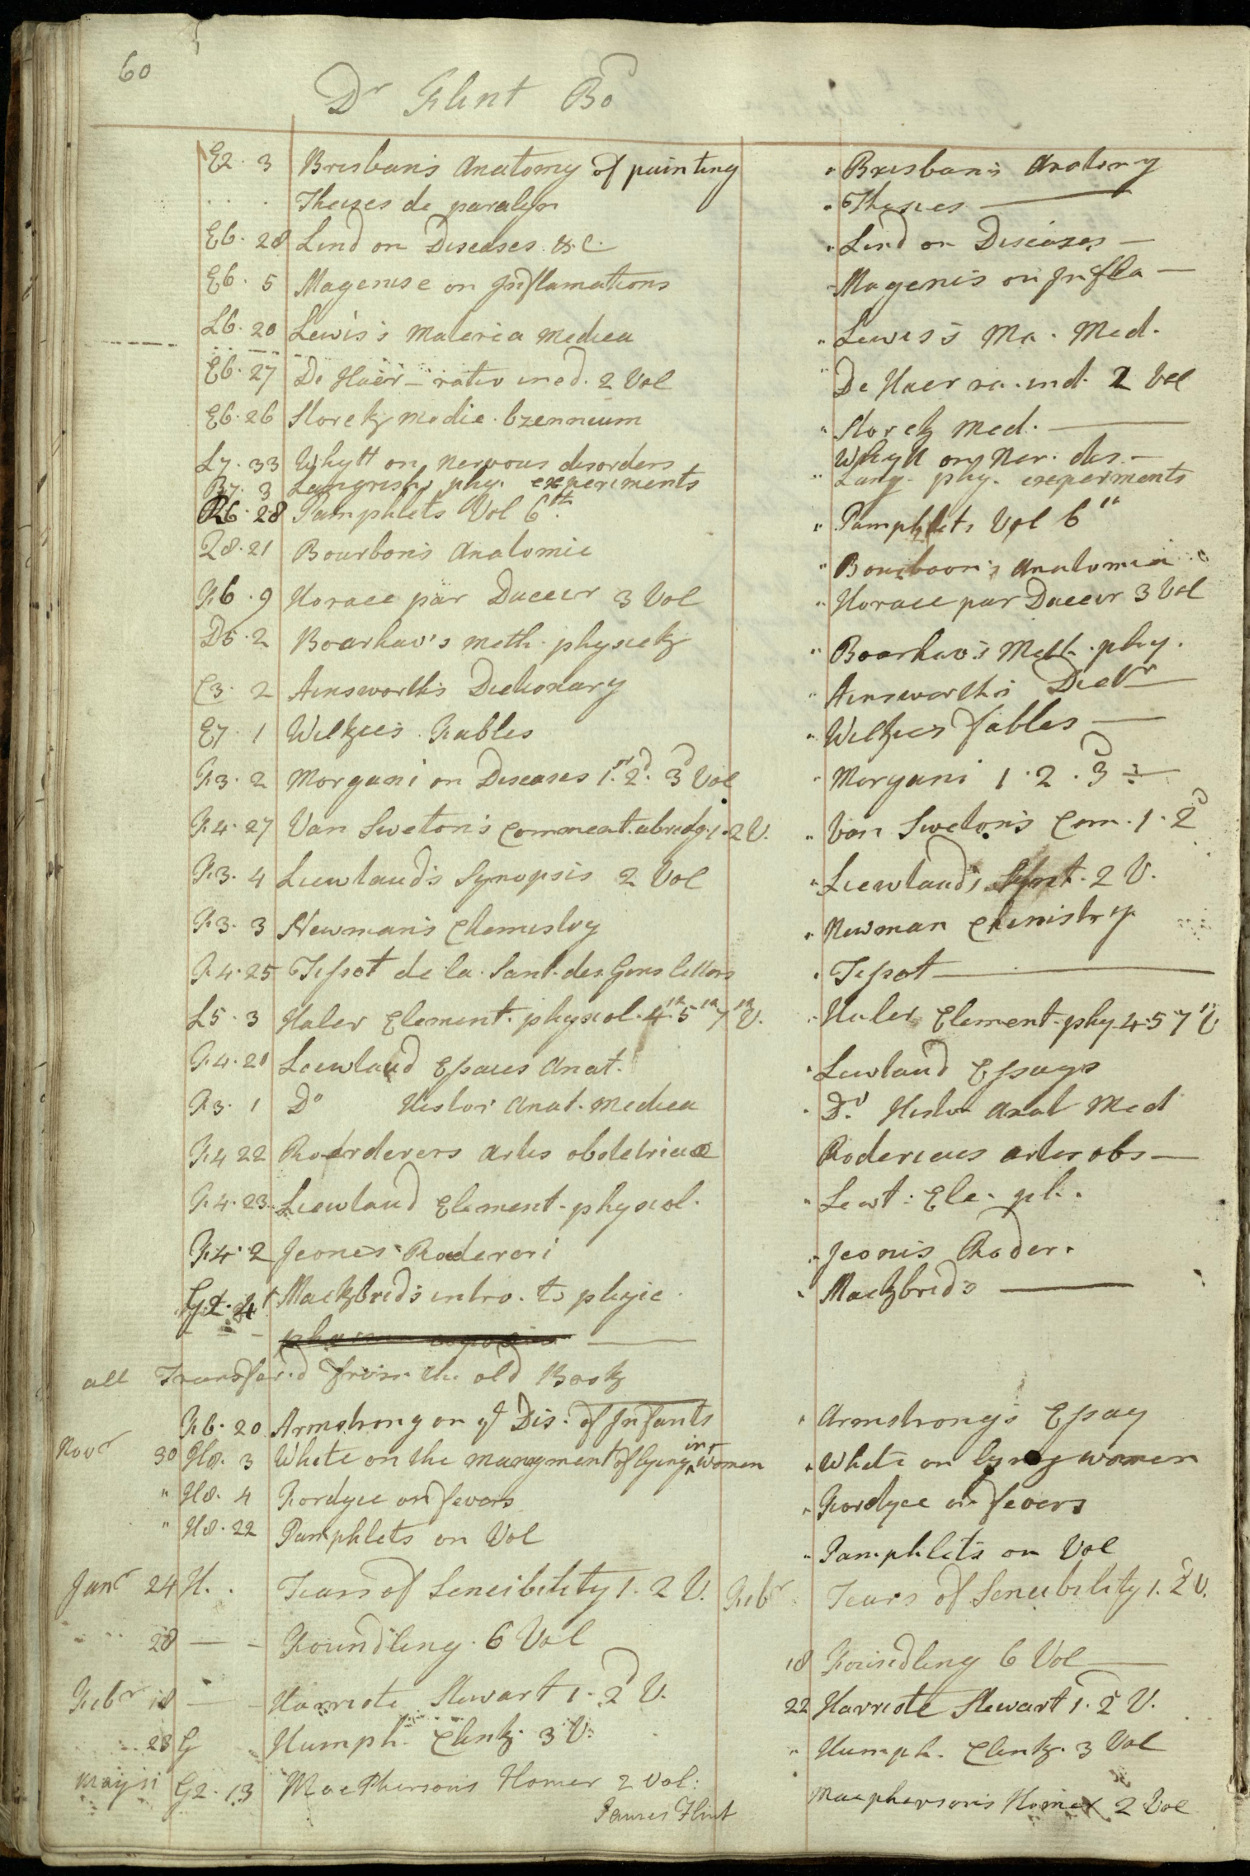 60
Dr Flint Bo
E2 . 3 Brisban's Anatomy of painting " Brisban's Anatomy
Theises de paralysi " Theses
E6 . 28 Lind on Diseases &c. " Lind on Diseases
E6 . 5 Magenise on Inflamations " Magenis on Infla
L6 . 20 Lewis's Materia Medica " Lewis's Ma . Med .
E6 . 27 De Haen ratio med . 2 Vol De Haen ra . md . 2 Vol
E6 . 26 Storck medic . " Storck Med .
L7 . 33 Whytt on nervous disorders Whytt on Ner . dis .
B7 . 3 Langrish's phy . experiments " Lang . phy . experiments
R6 . 28 Pamphlets Vol 6th " Pamphlets Vol 6th
28 . 21 Bourbon's Anatomie " Bourboon's Anatomie
F6 . 9 Horace par Daceer 3 Vol " Horace par Daceer 3 Vol
D5 . 2 Boarhav's meth . physick " Boarhav's Meth . phy .
C3 . 2 Ainsworth's Dictionary " Ainsworth's Dictr
E7 . 1 Wilkies Fables " Wilkies fables
F3 . 2 Morgani on Diseases 1st 2d 3d Vol " Morgani 1 . 2 . 3d
F4 . 27 Van Sweton's Comment . abredg . 1 . 2 V . " Van Sweton's Com . 1 . 2d
F3 . 4 Liewtaud's Synopsis 2 Vol " Liewtaud's Synt . 2 V .
F3 . 3 Newman's Chemistry " Newman Chemistry
F4 . 25 Tissot de la Sant . des Gens lettors " Tissot
L5 . 3 Haler Element . physiol . 4th 5th 7th V . " Haler Element . phy . 4 . 5 7th V
F4 . 21 Liewtaud Essaies Anat . " Liewtaud Essays
F3 . 1 Do Histor Anat . Medica " Do Histor Anat Med
F4 22 Roerderers Artis obstetricae Rodericus artis obs
F4 . 23 Liewtaud Element . physiol . " Lewt : Ele . ph .
F4 . 2 Jeones Roderori " Jeonis Roder .
G2 . 4 Mackbrid's intro . to phyic . " Mackbrid's
all Transfer'd from the old Book
F6 . 20 Armstrong on ye Dis . of Infants " Armstrong's Essay
Novr 30 H8 . 3 White on the manegment of lying in Women " White on lying women
" H8 . 4 Fordyce on fevors " Fordyce on fevers
" H8 . 22 Pamphlets on Vol " Pamphlets on Vol
Janr 24 H . . Tears of Sencibility 1 . 2 V . Febr Tears of Sencibility 1 . 2d V .
28 Foundling . 6 Vol 18 Foundling 6 Vol
Febr 18 Harriote Stewart 1 . 2d V . 22 Harriote Stewart 1 . 2d V .
28 G Humph . Clink . 3 V . " Humph . Clink . 3 Vol
May 11 G2 . 13 MacPhersons Homer 2 Vol : Macpherson's Homer 2 Vol
James Flint